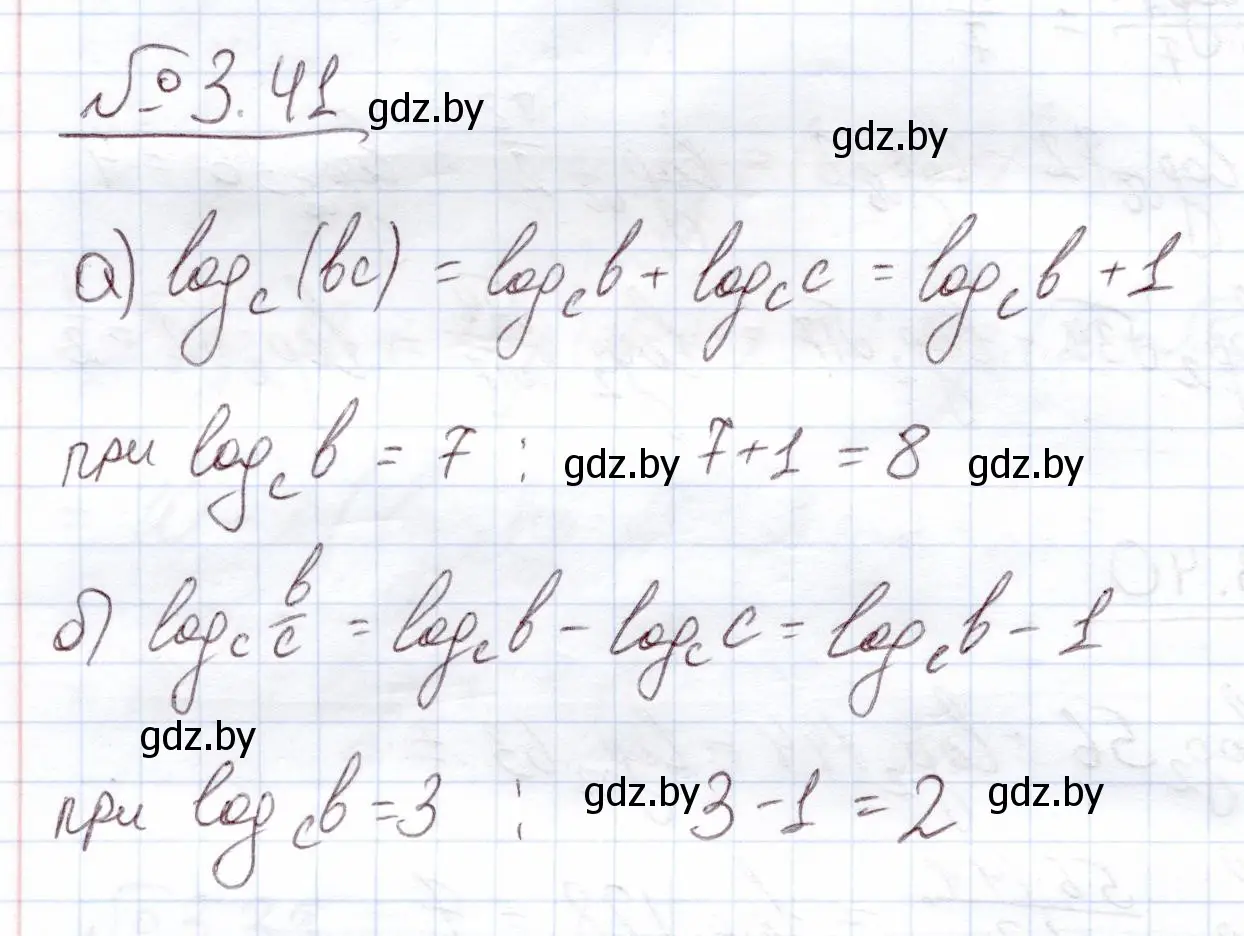 № 3.41 gdz.by gdz.by
а) log_c (bc) = log_c b + log_c c = log_c b + 1
при log_c b = 7 : gdz.by 7+1 = 8 gdz.by
б) log_c b/c = log_c b - log_c c = log_c b - 1
gdz.by
при log_c b = 3 : gdz.by 3-1 = 2 gdz.by